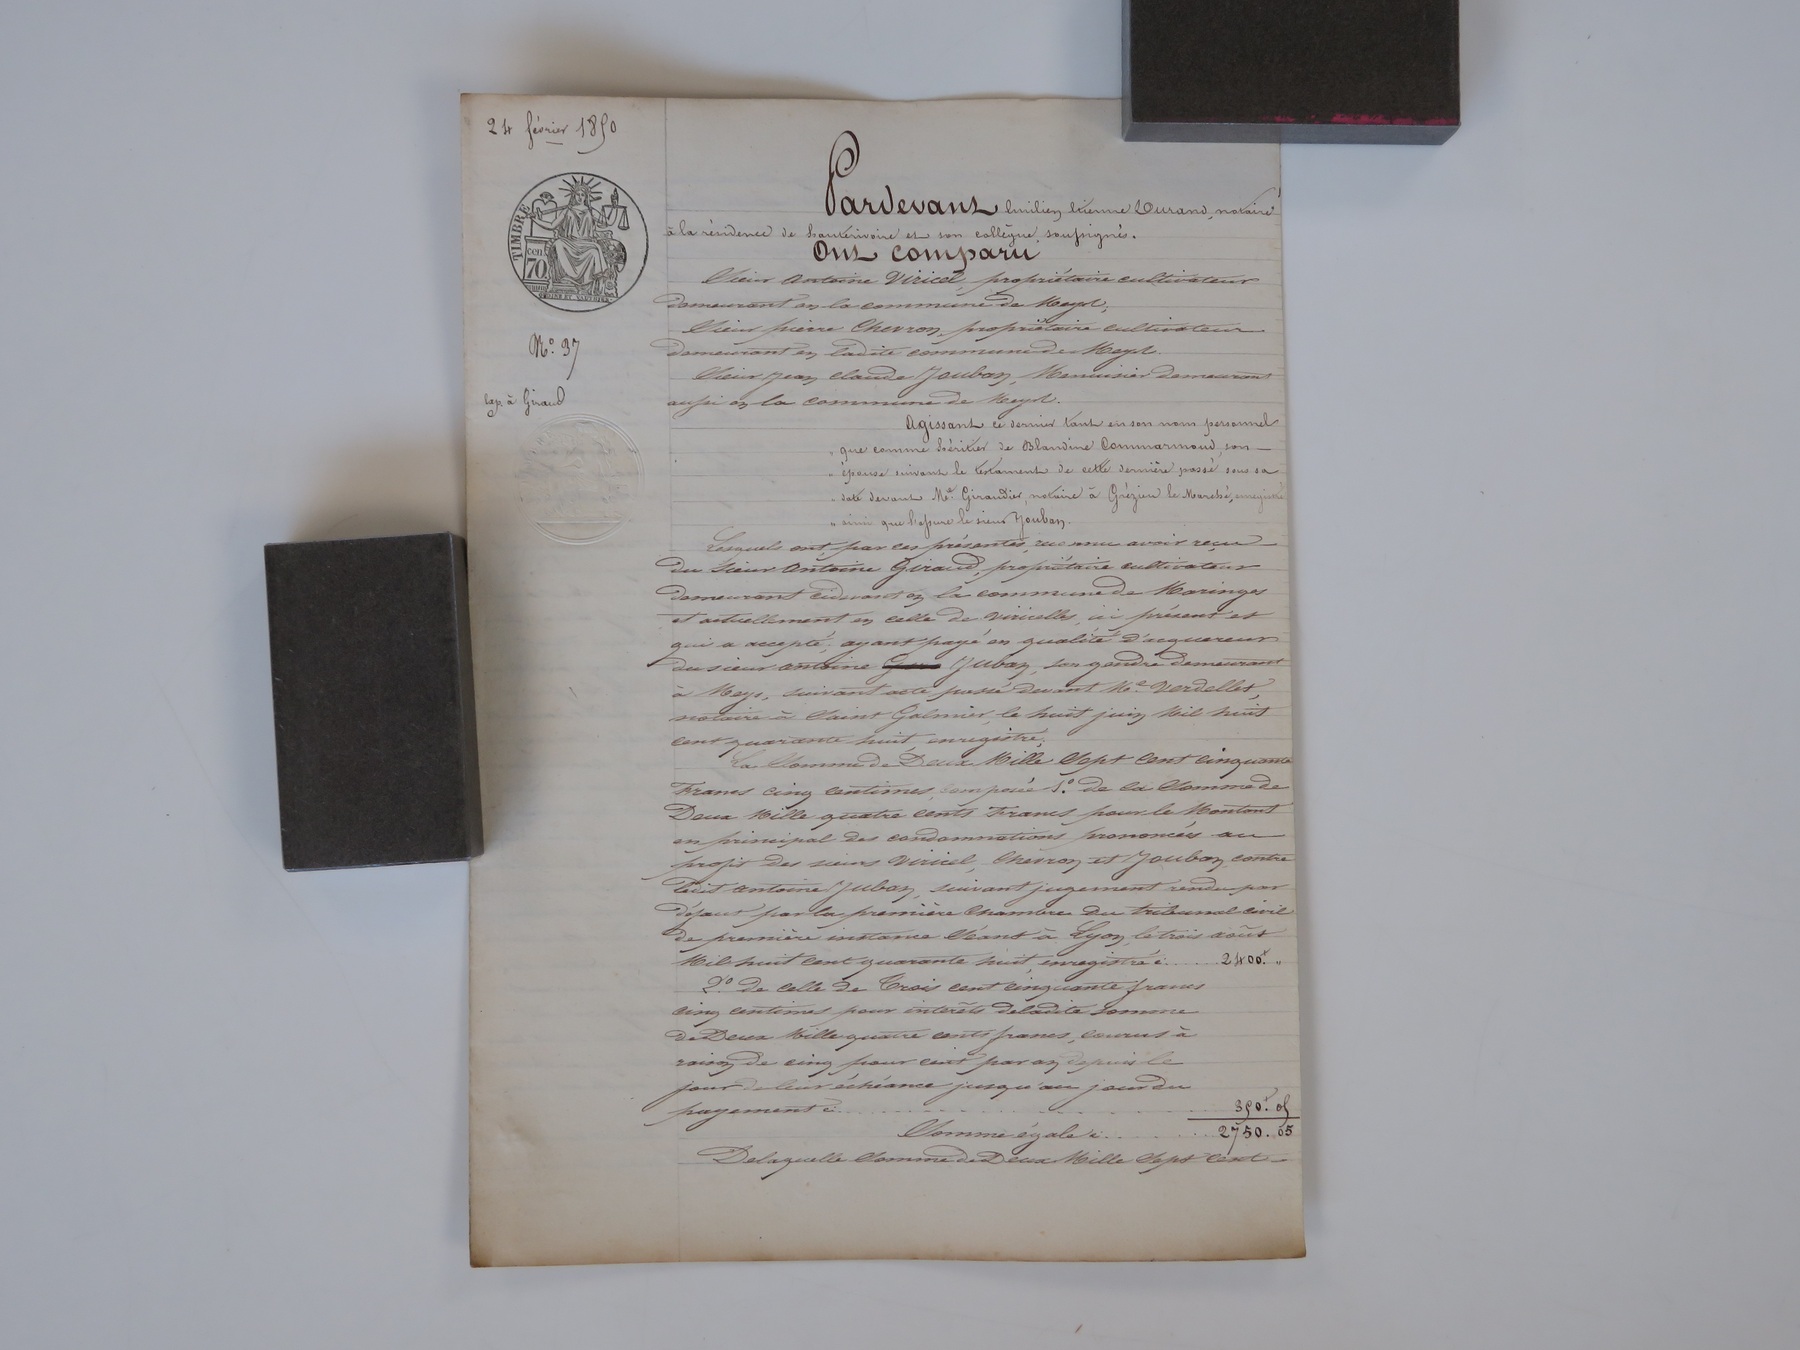 24 février 1850
TIMBRE
cen
70
N.º 37
exp. à Giraud
Pardevant Emilien Etienne Durand, notaire
à la résidence de hauterivoire et son collègue, soussignés.
Ont comparu
Sieur Antoine Viricel, propriétaire cultivateur
demeurant en la commune de Meys,
Sieur pierre Chevron, propriétaire cultivateur
demeurant en ladite commune de Meys.
Sieur Jean claude Jouban, Menuisier demeurant
aussi en la commune de Meys.
Agissant ce dernier tant en son nom personnel
" que comme héritier de Blandine Commarmond, son
" épouse suivant le testament de cette dernière passé sous sa
" date devant Me. Giraudier, notaire à Grézieu le Marché, enregistré
" ainsi que l'assure le sieur Jouban.
Lesquels ont par ces présentes, reconnu avoir reçu
du sieur Antoine Giraud, propriétaire cultivateur
demeurant cidevant en la commune de Maringes
et actuellement en celle de viricelles, ici présent et
qui a accepté, ayant payé en qualité d'acquereur
du sieur antoine Juban, son gendre demeurant
à Meys, suivant acte passé devant Me. Verdellet,
notaire à Saint Galmier, le huit juin Mil huit
cent quarante huit, enregistré.
La Somme de Deux Mille Sept Cent cinquante
Francs cinq centimes, composée 1.º de la Somme de
Deux Mille quatre cents Francs pour le Montant
en principal des condamnations prononcées au
profit des sieurs Viricel, Chevron et Jouban contre
ledit antoine Juban, suivant jugement rendu par
défaut par la première Chambre du tribunal civil
de première instance Séant à Lyon, le trois août
Mil huit Cent quarante huit, enregistré c. 2400.f "
2.º de celle de Trois cent cinquante francs
cinq centimes pour intérêts deladite somme
de Deux Mille quatre cents francs, courus à
raison de cinq pour cent par an depuis le
jour de leur échéance jusqu'au jour du
payement c. 350.f 05
Somme égale c. 2750. 05
Delaquelle Somme de Deux Mille Sept Cent